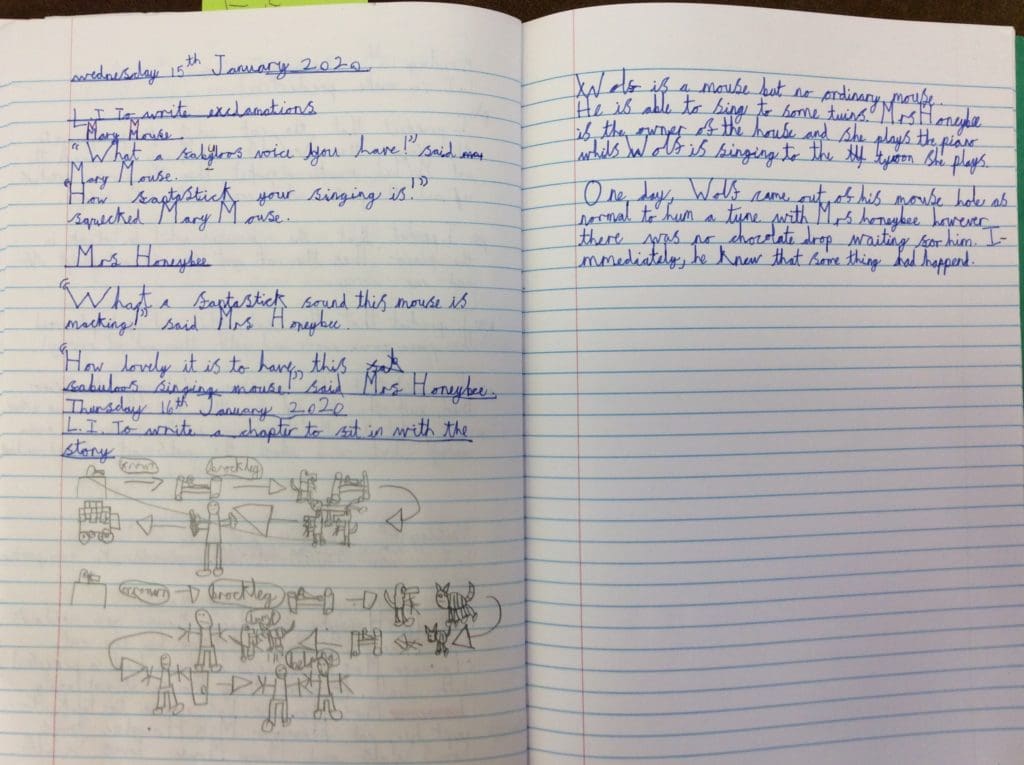 wednesday 15th January 2020
L.I To write exclamations
Mary Mouse.
"What a fabyloos voice you have!" said
Mary Mouse.
"How faptastick your singing is!"
squecked Mary Mouse.
Mrs Honeybee
"What a faptastick sound this mouse is
macking!" said Mrs Honeybee.
"How lovely it is to have, this fab
fabuloos singing mouse!" said Mrs Honeybee.
Thursday 16th January 2020
L.I. To write a chapter to fit in with the
story
brockleg
brockleg
Wolf is a mouse but no ordinary mouse.
He is able to sing to some twins. Mrs Honeybee
is the owner of the house and she plays the piano
whils Wolf is singing to the tycoon she plays.
One day, Wolf came out of his mouse hole as
normal to hum a tyne with Mrs honeybee however
there was no chocolate drop waiting for him. I-
mmediately, he knew that some thing had happend.